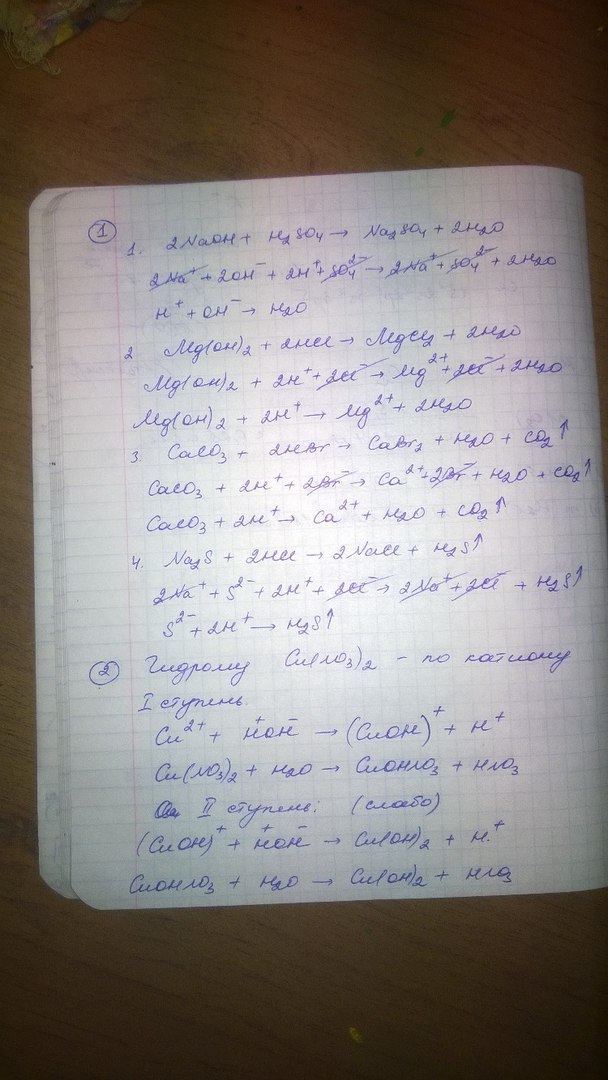 1
1. 2NaOH + H₂SO₄ → Na₂SO₄ + 2H₂O
2Na⁺ + 2OH⁻ + 2H⁺ + SO₄²⁻ → 2Na⁺ + SO₄²⁻ + 2H₂O
H⁺ + OH⁻ → H₂O
2 Mg(OH)₂ + 2HCl → MgCl₂ + 2H₂O
Mg(OH)₂ + 2H⁺ + 2Cl⁻ → Mg²⁺ + 2Cl⁻ + 2H₂O
Mg(OH)₂ + 2H⁺ → Mg²⁺ + 2H₂O
3. CaCO₃ + 2HBr → CaBr₂ + H₂O + CO₂↑
CaCO₃ + 2H⁺ + 2Br⁻ → Ca²⁺ + 2Br⁻ + H₂O + CO₂↑
CaCO₃ + 2H⁺ → Ca²⁺ + H₂O + CO₂↑
4. Na₂S + 2HCl → 2NaCl + H₂S↑
2Na⁺ + S²⁻ + 2H⁺ + 2Cl⁻ → 2Na⁺ + 2Cl⁻ + H₂S↑
S²⁻ + 2H⁺ → H₂S↑
2 Гидролизу Cu(NO₃)₂ – по катиону
I ступень.
Cu²⁺ + H⁺OH⁻ → (CuOH)⁺ + H⁺
Cu(NO₃)₂ + H₂O → CuOHNO₃ + HNO₃
II ступень: (слабо)
(CuOH)⁺ + H⁺OH⁻ → Cu(OH)₂ + H⁺
CuOHNO₃ + H₂O → Cu(OH)₂ + HNO₃